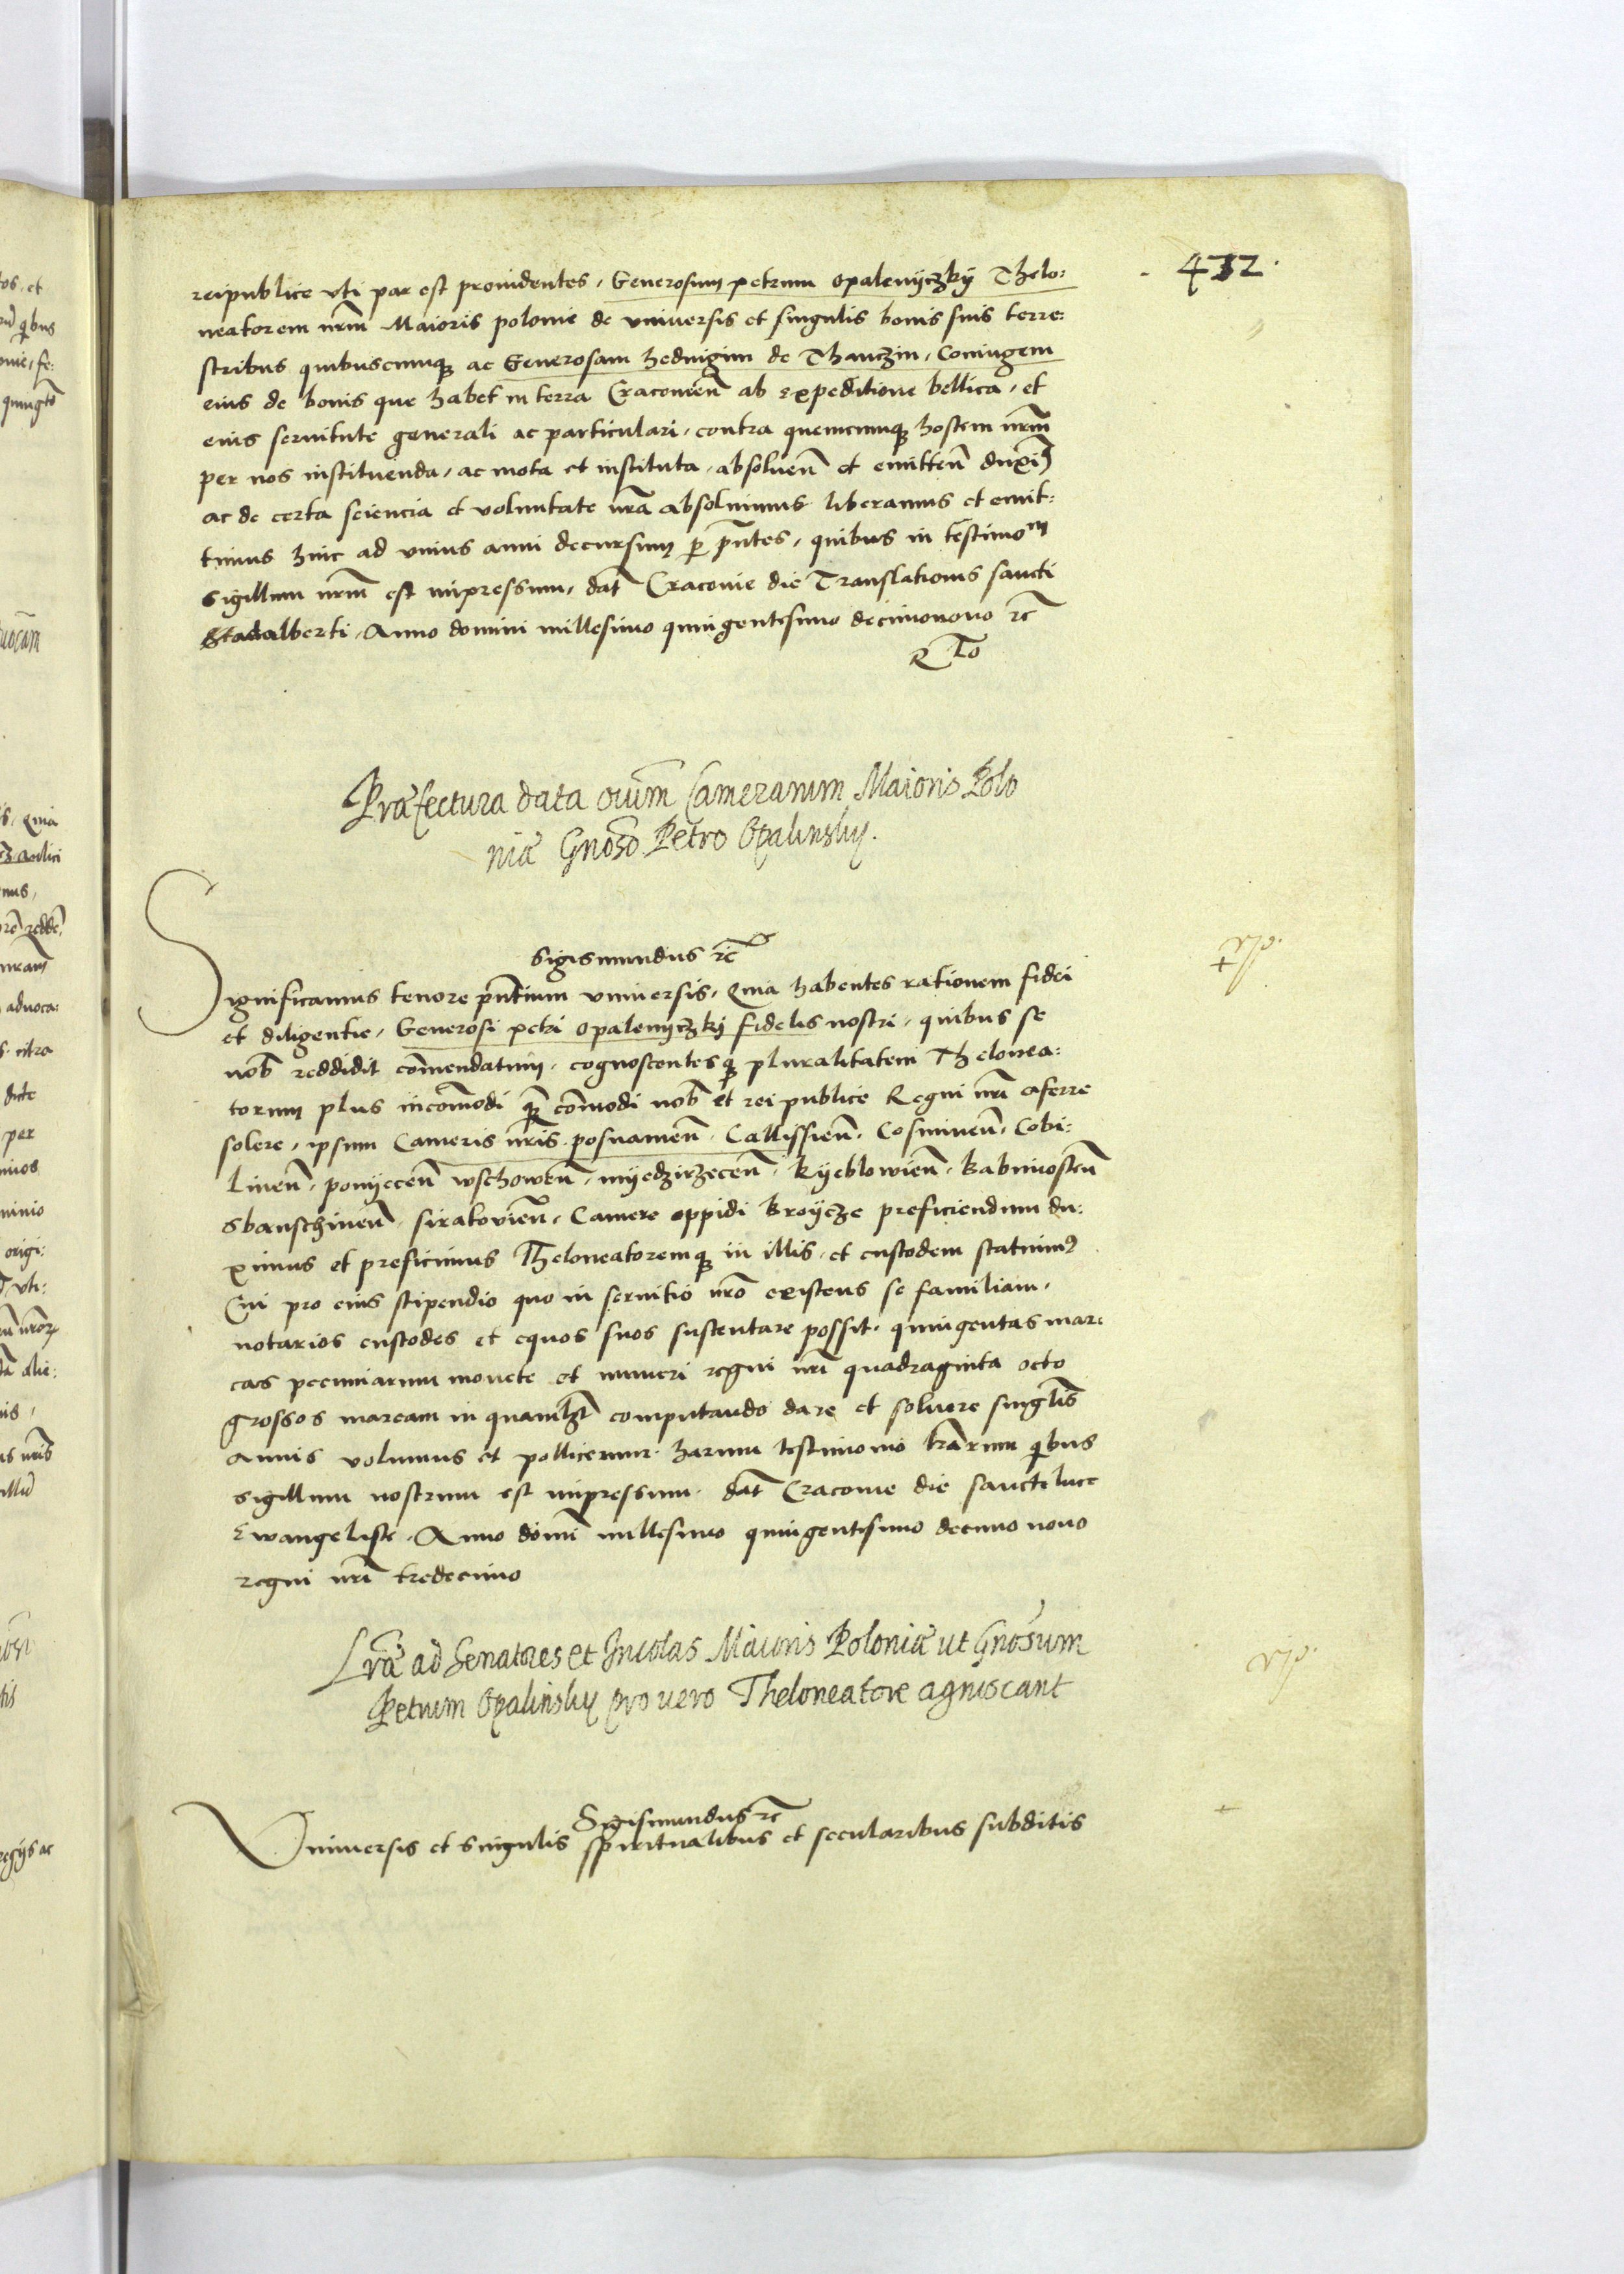 432.
reipublice vti par est prouidentes, Generosum petrum Opalenyczky Thelo:
neatorem nrm̃ Maioris polonie de vniuersis et singulis bonis suis terre:
stribus quibuscumq3 ac Generosam hedwigim de Thanczin, Coniugem
eius de bonis que habet in terra Cracouien̄ ab expeditione bellica, et
eius seruitute generali ac particulari, contra quemcumq3 hostem nrm̃
per nos instituenda, ac mota et instituta, absoluen̄ et emitten̄ duxim9
ac de certa sciencia et voluntate nrã absoluimus liberamus et emit:
timus hinc ad vnius anni decursum p pñtes, quibus in testimom
sigillum nrm̃ est impressum, dat̃ Cracouie die Translationis sancti
adalberti, Anno domini millesimo quingentesimo decimonono rc̃
R To
Præfectura data oium̃ Camerarum Maioris Polo
niæ Gnõso Petro Opalinsky.
Sigismundus rc̃
Significamus tenore pñtium vniuersis, Quia habentes rationem fidei
et diligentie, Generosi petri Opalenyczky fidelis nostri, quibus se
nob̃ reddidit com̃endatum, cognoscentesq3 pluralitatem Thelonea:
torum plus incom̃odi q3̃ com̃odi nob̃ et rei publice Regni nrĩ aferre
solere, ipsum Cameris nris̃ posnanien̄, Callissien̄, Cosminen̄, Cobi:
linen̄, ponyecen̄ wschowen̄, myedzirzecen̄, Kyeblowien̄, Babimosten̄
Sbanschinen̄, sirakovien̄, Camere oppidi Broycze preficiendum du:
ximus et preficimus Theloneatoremq3 in illis, et custodem statuim9
Cui pro eius stipendio quo in seruitio nrõ existens se familiam,
notarios custodes et equos suos sustentare possit, quingentas mar:
cas pecuniarum monete et numeri regni nrĩ quadraginta octo
grossos marcam in quamlzt̃ computando dare et soluere singlis̃
annis volumus et pollicemur, harum testimonio lrãrum qibus
sigillum nostrum est impressum, dat̃ Cracouie die sancti luce
Ewangeliste, Anno domĩ millesimo quingentesimo decimo nono
regni nrĩ tredecimo
Lræ̃ ad Senatores et Incolas Maioris Poloniæ ut Gnõsum
Petrum Opalinsky pro uero Theloneatore agnoscant
Sigismundus rc̃
Vniuersis et singulis spiritualibus et secularibus subditis